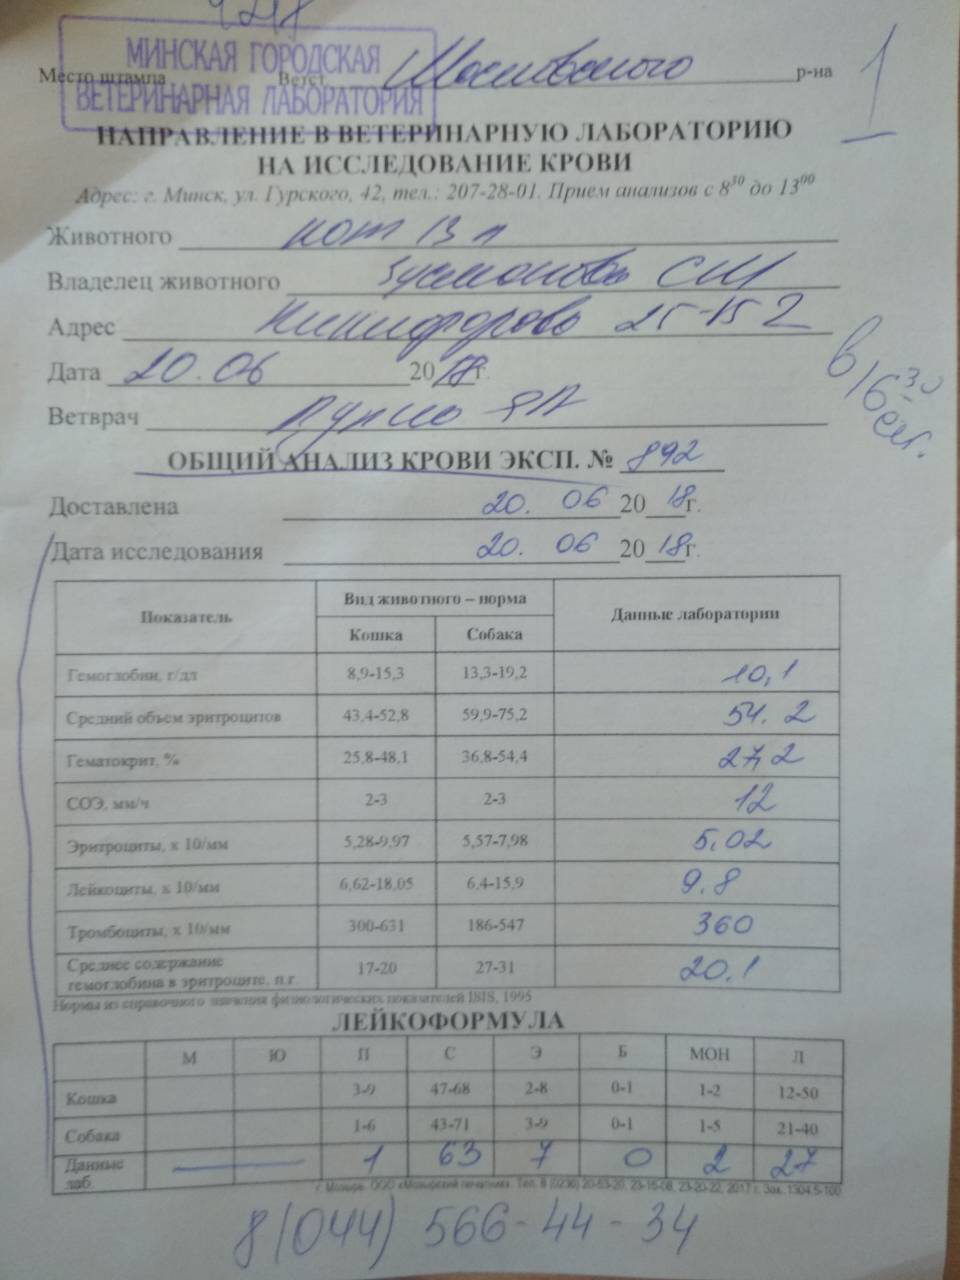 МИНСКАЯ ГОРОДСКАЯ
ВЕТЕРИНАРНАЯ ЛАБОРАТОРИЯ
Место штампа Ветст. Московского р-на
1
НАПРАВЛЕНИЕ В ВЕТЕРИНАРНУЮ ЛАБОРАТОРИЮ
НА ИССЛЕДОВАНИЕ КРОВИ
Адрес: г. Минск, ул. Гурского, 42, тел.: 207-28-01. Прием анализов с 8³⁰ до 13⁰⁰
Животного кот 13 л
Владелец животного
Адрес Никифорова 25-152
Дата 20.06 2018г.
в 16 30
Ветврач
ОБЩИЙ АНАЛИЗ КРОВИ ЭКСП. № 892
Доставлена 20. 06 2018г.
Дата исследования 20. 06 2018г.
Показатель Вид животного – норма Данные лаборатории
Кошка Собака
Гемоглобин, г/дл 8,9-15,3 13,3-19,2 10,1
Средний объем эритроцитов 43,4-52,8 59,9-75,2 54.2
Гематокрит, % 25,8-48,1 36,8-54,4 27,2
СОЭ, мм/ч 2-3 2-3 12
Эритроциты, х 10/мм 5,28-9,97 5,57-7,98 5.02
Лейкоциты, х 10/мм 6,62-18,05 6,4-15,9 9.8
Тромбоциты, х 10/мм 300-631 186-547 360
Среднее содержание
гемоглобина в эритроците, п.г. 17-20 27-31 20.1
Нормы из справочного значения физиологических показателей IBIS, 1995
ЛЕЙКОФОРМУЛА
М Ю П С Э Б МОН Л
Кошка 3-9 47-68 2-8 0-1 1-2 12-50
Собака 1-6 43-71 3-9 0-1 1-5 21-40
Данные лаб. — 1 63 7 0 2 27
г. Мозырь. ООО «Мозырский печатник». Тел. 8 (0236) 20-53-20, 23-15-08, 23-20-22, 2017 г. Зак. 1304.5-100
8(044) 566-44-34